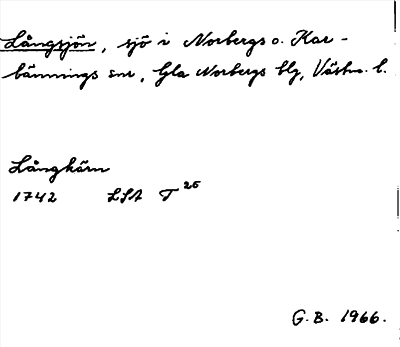 Långsjön, sjö i Norbergs o. Kar-
bännings snr, Gla Norbergs blg, Västm. l.
Långkärn
1742 LSA T 25
G. B. 1966.